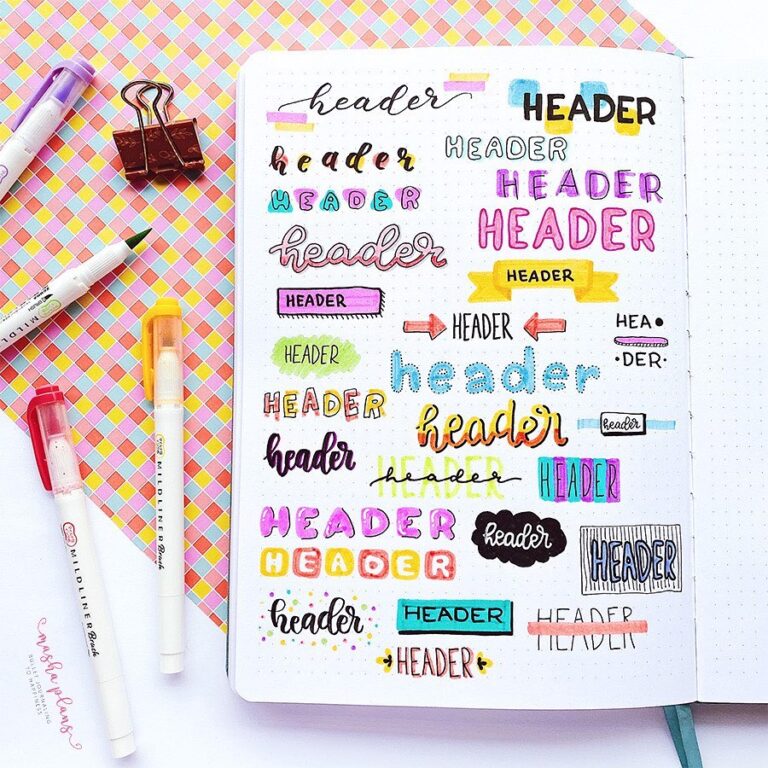 header
HEADER
header
HEADER
HEADER
HEADER
header
HEADER
HEADER
HEADER
HEADER
HEA
DER
HEADER
header
HEADER
header
header
header
HEADER
header
HEADER
HEADER
header
HEADER
HEADER
header
HEADER
HEADER
HEADER
MILDLINER
MILDLINER Brush
MILDLINER Brush
masha plans
BULLET JOURNALING
TO HAPPINESS